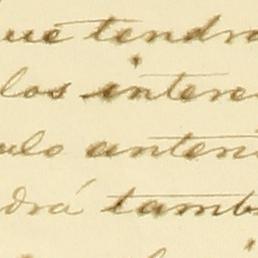 que tendrá
los intere
ulo anteri
drá tamb